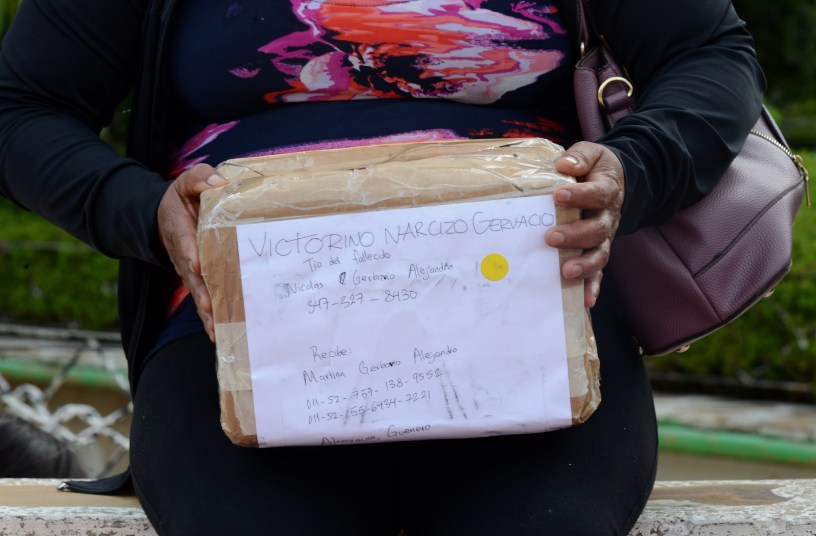 VICTORINO NARCIZO GERVACIO
Tio del fallecido
Nicolas Gerbaro Alejandro
347-527-8430
Recibe:
Martina Gerbaro Alejandro
011-52-757-138-9552
011-52-155-6434-7221
Guerrero